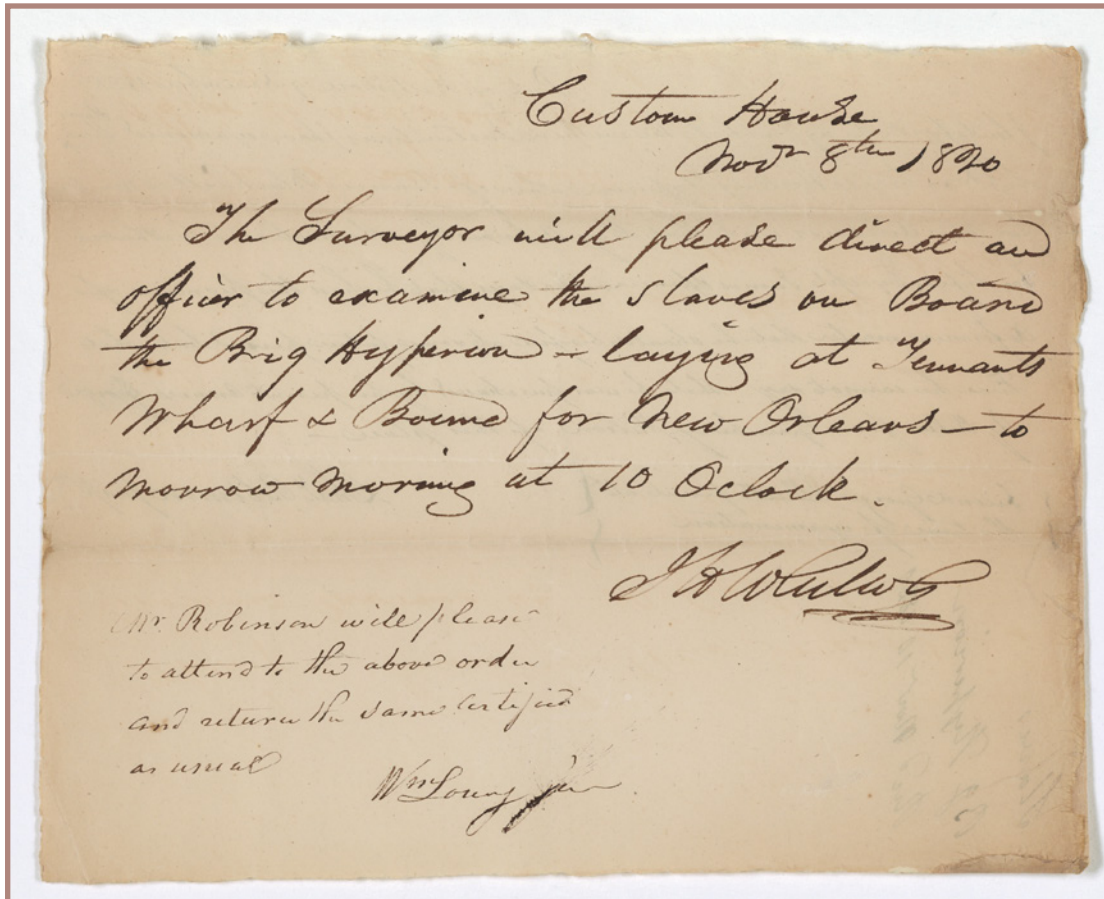 Custom House
Novr 8th 1820
The Surveyor will please direct an
officer to examine the slaves on Board
the Brig Hyperion - laying at Tennants
Wharf & Bound for New Orleans – to
morrow morning at 10 OClock.
Mr. Robinson will please
to attend to the above order
and return the same Certified
as usual
Wm Lowry